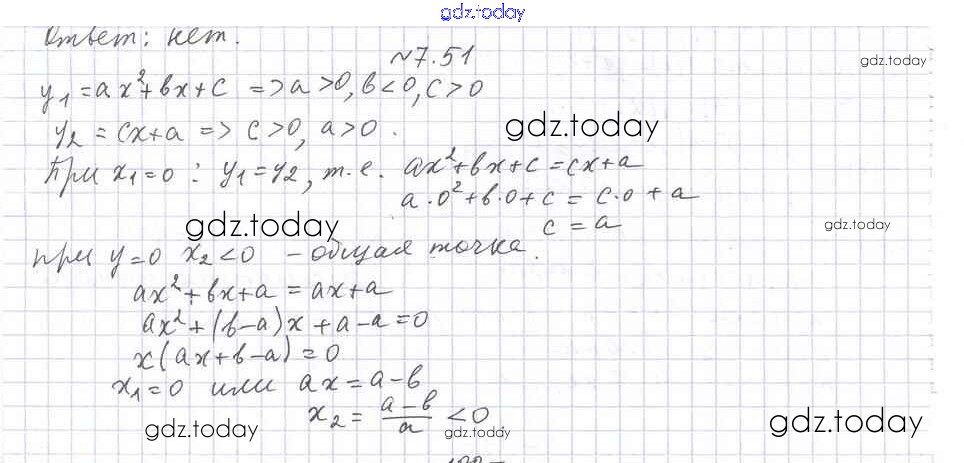 gdz.today
Ответ: нет.
№7.51
gdz.today
y₁=ax²+bx+c => a>0, b<0, c>0
y₂=cx+a => c>0, a>0.
gdz.today
При x₁=0: y₁=y₂, т.е. ax²+bx+c=cx+a
a·0²+b·0+c=c·0+a
gdz.today c=a gdz.today
при y=0 x₂<0 – общая точка.
ax²+bx+a=ax+a
ax²+(b-a)x+a-a=0
x(ax+b-a)=0
x₁=0 или ax=a-b
x₂=(a-b)/a <0
gdz.today gdz.today gdz.today